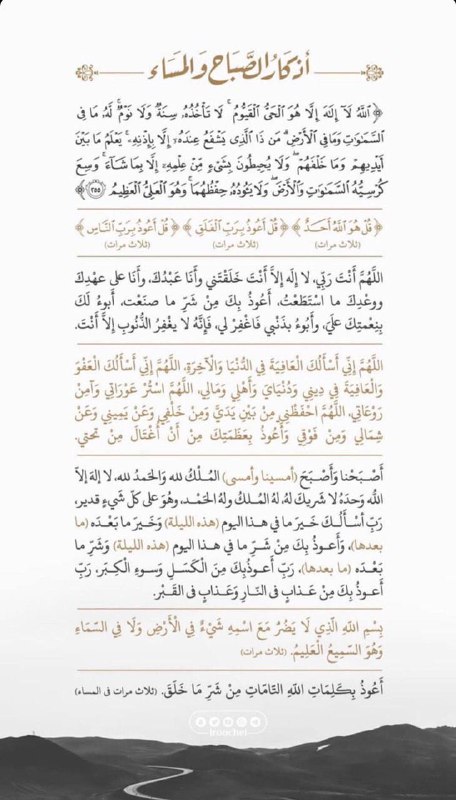 أذكار الصباح والمساء
﴿ ٱللَّهُ لَآ إِلَٰهَ إِلَّا هُوَ ٱلْحَىُّ ٱلْقَيُّومُ ۚ لَا تَأْخُذُهُۥ سِنَةٌ وَلَا نَوْمٌ ۚ لَّهُۥ مَا فِى
ٱلسَّمَٰوَٰتِ وَمَا فِى ٱلْأَرْضِ ۗ مَن ذَا ٱلَّذِى يَشْفَعُ عِندَهُۥٓ إِلَّا بِإِذْنِهِۦ ۚ يَعْلَمُ مَا بَيْنَ
أَيْدِيهِمْ وَمَا خَلْفَهُمْ ۖ وَلَا يُحِيطُونَ بِشَىْءٍ مِّنْ عِلْمِهِۦٓ إِلَّا بِمَا شَآءَ ۚ وَسِعَ
كُرْسِيُّهُ ٱلسَّمَٰوَٰتِ وَٱلْأَرْضَ ۖ وَلَا يَـُٔودُهُۥ حِفْظُهُمَا ۚ وَهُوَ ٱلْعَلِىُّ ٱلْعَظِيمُ ٢٥٥ ﴾
﴿ قُلْ هُوَ ٱللَّهُ أَحَدٌ ﴾ ﴿ قُلْ أَعُوذُ بِرَبِّ ٱلْفَلَقِ ﴾ ﴿ قُلْ أَعُوذُ بِرَبِّ ٱلنَّاسِ ﴾
(ثلاث مرات) (ثلاث مرات) (ثلاث مرات)
اللَّهُمَّ أَنْتَ رَبِّي، لا إله إلَّا أَنْتَ خَلَقْتَني وأَنَا عَبْدُكَ، وأَنَا على عهْدِكَ
ووعْدِكَ ما اسْتَطَعْتُ، أَعُوذُ بِكَ مِنْ شَرِّ ما صنَعْت، أَبوءُ لَكَ
بِنِعْمتِكَ عليَّ، وأَبُوءُ بذَنْبي فَاغْفِرْ لي، فَإِنَّهُ لا يغْفِرُ الذُّنُوبَ إِلاَّ أَنْتَ.
اللَّهُمَّ إِنِّي أَسْأَلُكَ الْعَافِيَةَ فِي الدُّنْيَا وَالْآخِرَةِ، اللَّهُمَّ إِنِّي أَسْأَلُكَ الْعَفْوَ
وَالْعَافِيَةَ فِي دِينِي وَدُنْيَايَ وَأَهْلِي وَمَالِي، اللَّهُمَّ اسْتُرْ عَوْرَاتِي وَآمِنْ
رَوْعَاتِي، اللَّهُمَّ احْفَظْنِي مِنْ بَيْنِ يَدَيَّ وَمِنْ خَلْفِي وَعَنْ يَمِينِي وَعَنْ
شِمَالِي وَمِنْ فَوْقِي وَأَعُوذُ بِعَظَمَتِكَ مِنْ أَنْ أُغْتَالَ مِنْ تحتي.
أَصْبَحْنا وَأَصْبَحَ (أمسينا وأمسى) المُلْكُ لله وَالحَمدُ لله، لا إلهَ إلاّ
اللّهُ وَحدَهُ لا شَريكَ لهُ، لهُ المُلكُ ولهُ الحَمْد، وهُوَ على كلّ شَيءٍ قدير،
رَبِّ أسْأَلُكَ خَيرَ ما في هـذا اليوم (هذه الليلة) وَخَيرَ ما بَعْدَه (ما
بعدها)، وَأَعـوذُ بِكَ مِنْ شَرِّ ما في هـذا اليوم (هذه الليلة) وَشَرِّ ما
بَعْدَه (ما بعدها)، رَبِّ أَعـوذُبِكَ مِنَ الْكَسَلِ وَسوءِ الْكِبَر، رَبِّ
أَعـوذُ بِكَ مِنْ عَـذابٍ في النّارِ وَعَذابٍ في القَبْر.
بِسْمِ اللهِ الَّذِي لَا يَضُرُّ مَعَ اسْمِهِ شَيْءٌ فِي الْأَرْضِ وَلَا فِي السَّمَاءِ
وَهُوَ السَّمِيعُ الْعَلِيمُ. (ثلاث مرات)
أَعُوذُ بِكَلِمَاتِ اللهِ التَّامَّاتِ مِنْ شَرِّ مَا خَلَقَ. (ثلاث مرات فى المساء)